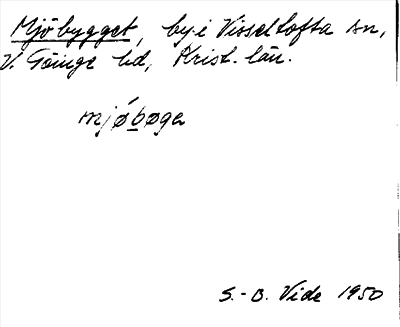 Mjöbygget, by i Visseltofta sn,
V. Göinge hd, Krist. län.
mjøbøge
S.-B. Vide 1950